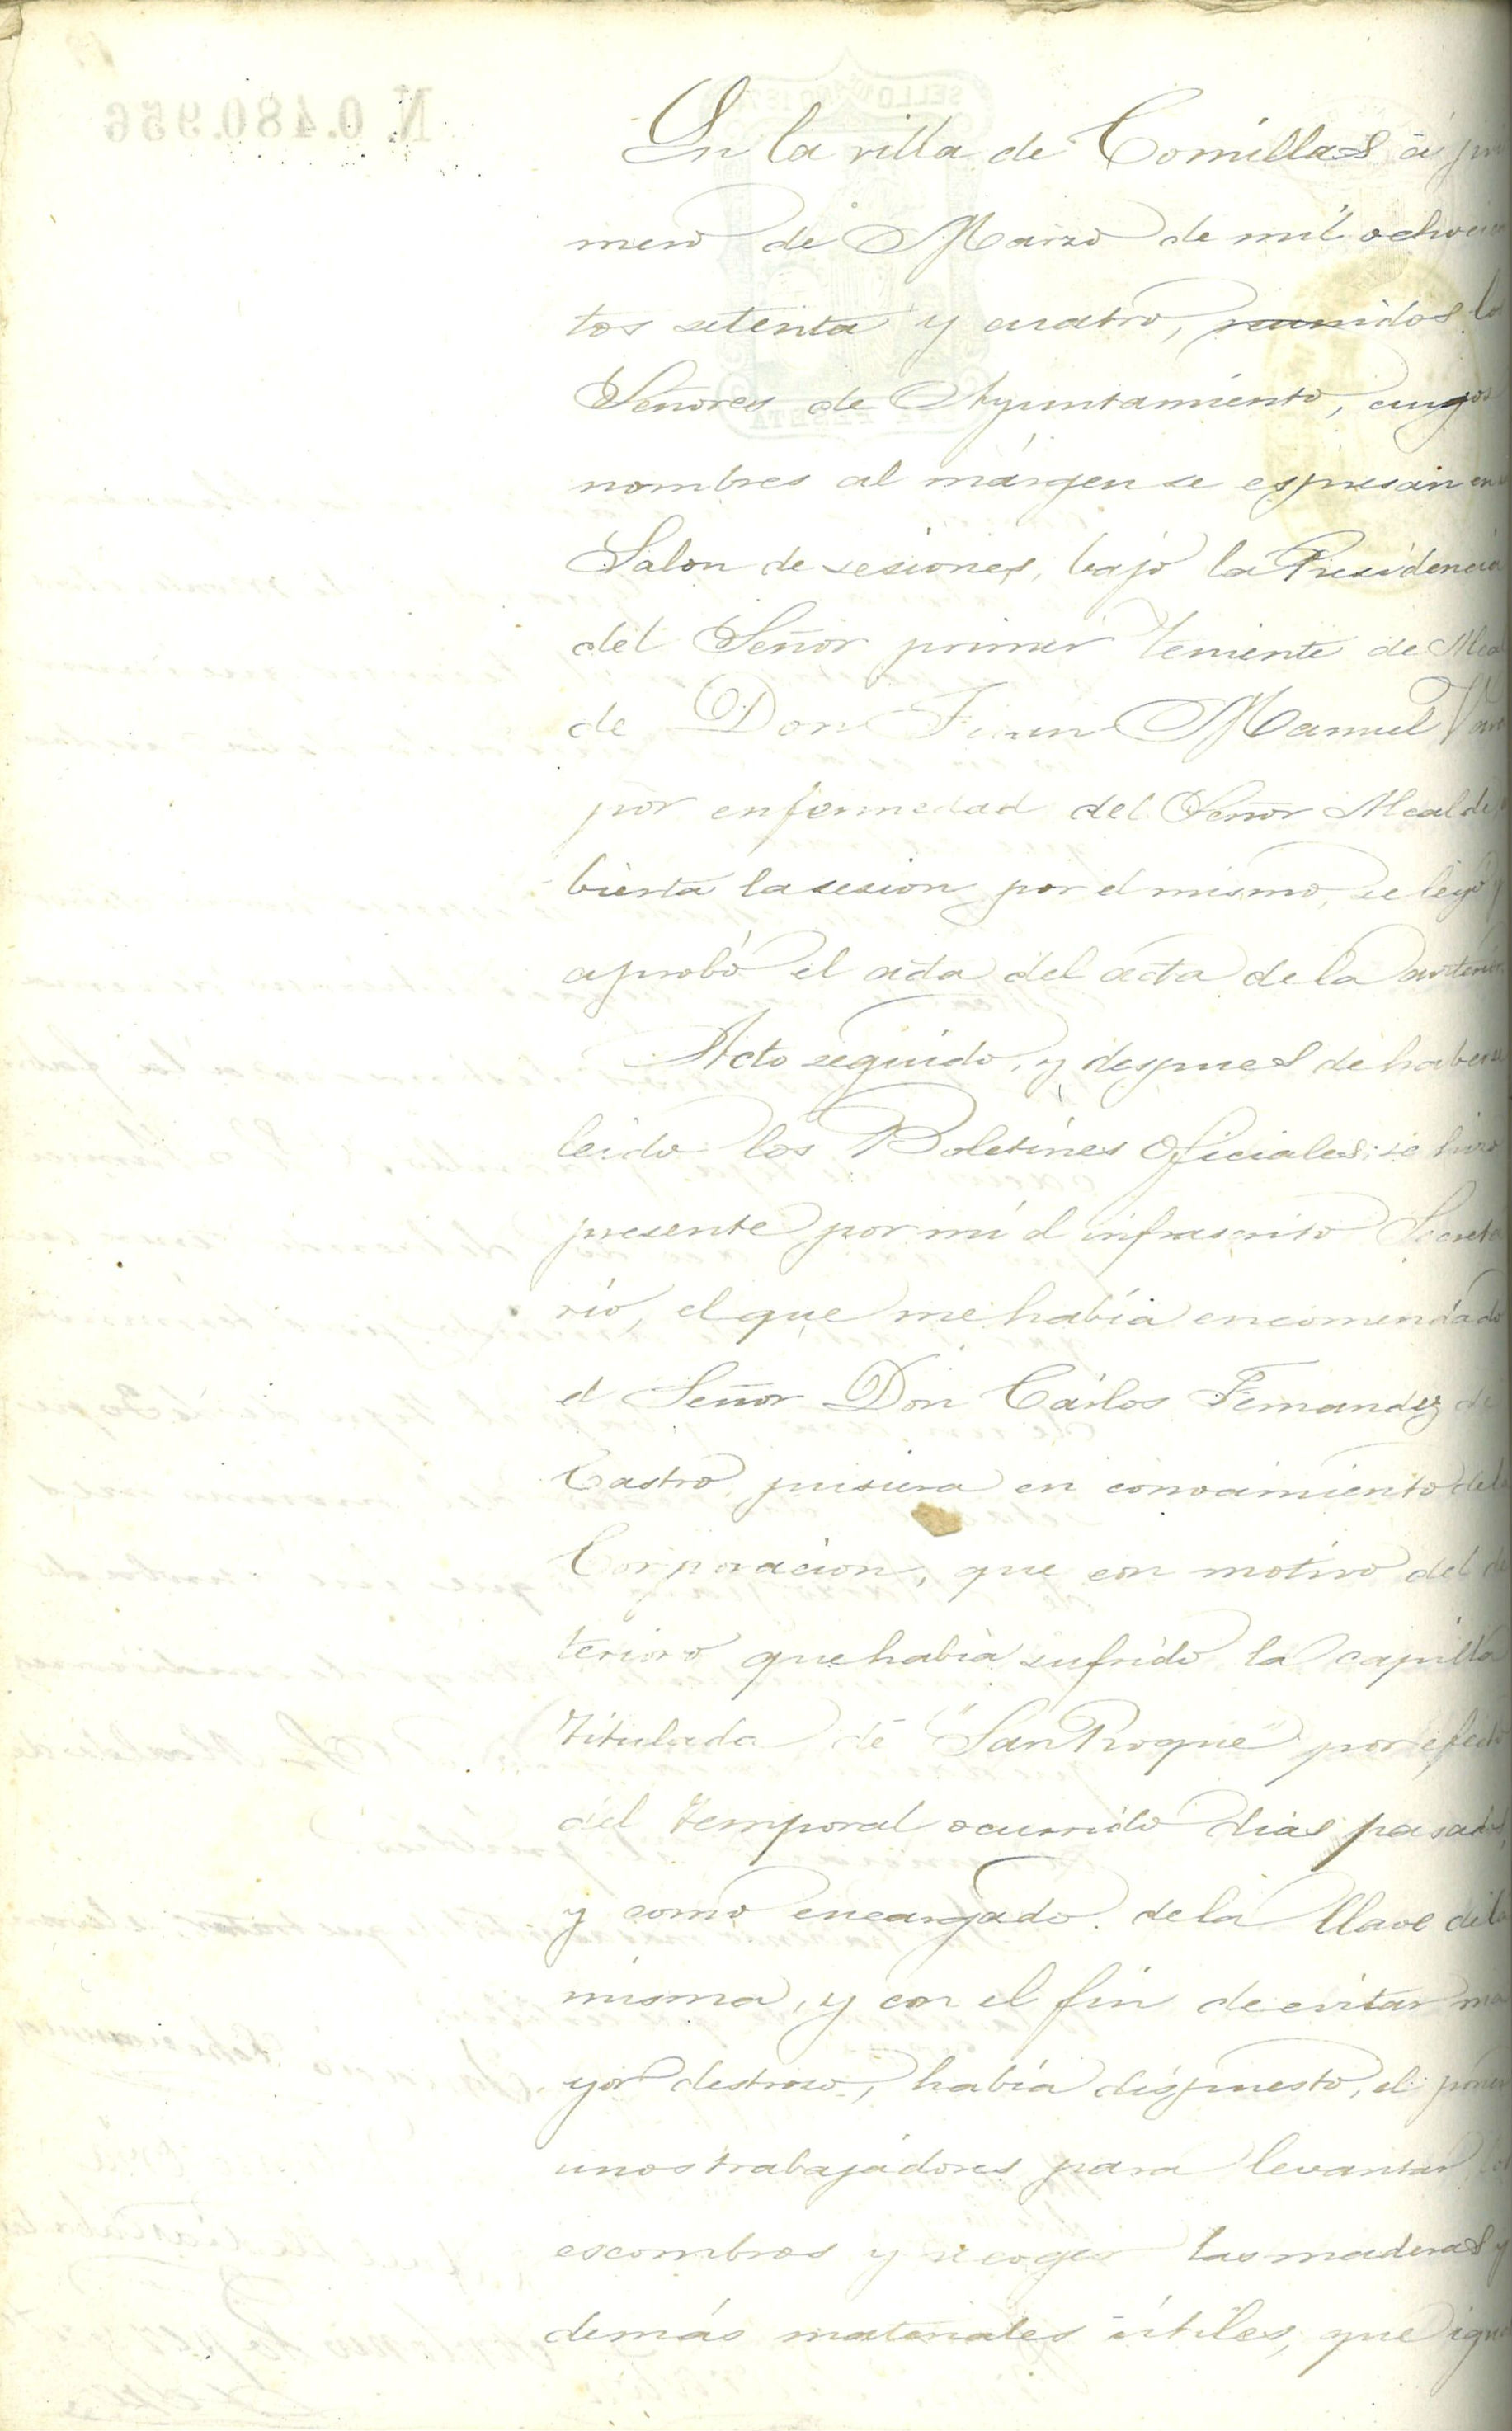 N. 0.480.956
En la villa de Comillas á pri
mero de Marzo de mil ochocien
tos setenta y cuatro, reunidos lo
Señores de Ayuntamiento, cuyos
nombres al márgen se espresan en
Salon de sesiones, bajo la Presidencia
del Señor primer teniente de Alcal
de Don Juan Manuel
por enfermedad del Señor Alcalde
bierta la sesion por el mismo, se leyó y
aprobó el acta del acta de la anterior
Acto seguido, y despues de haberse
leido los Boletines Oficiales; se hizo
presente por mí el infrascrito Secreta
rio, el que me habia encomendado
el Señor Don Cárlos Fernandez de
Castro pusiera en conocimiento de la
Corporacion, que con motivo del de
terioro que habia sufrido la capilla
titulada de "San Roque" por efecto
del temporal ocurrido dias pasados,
y como encargado de la llave de la
misma, y con el fin de evitar ma
yor destrozo, habia dispuesto, el poner
unos trabajadores para levantar
escombros y recoger las maderas y
demás materiales útiles, que igual